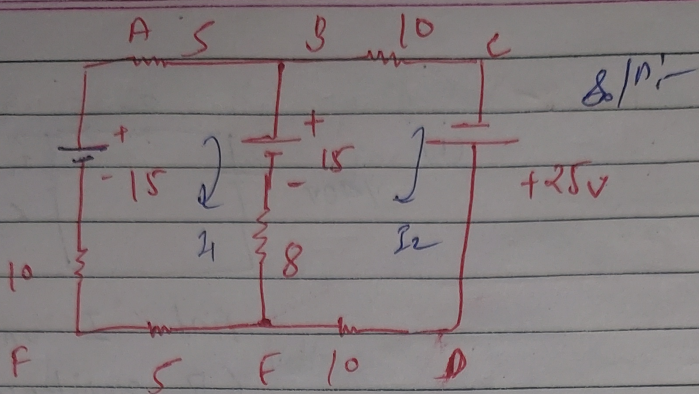 A 5 B 10 C
Sol^n:-
+ +
- 15 - 15 +25v
I1 I2
10 8
F 5 E 10 D